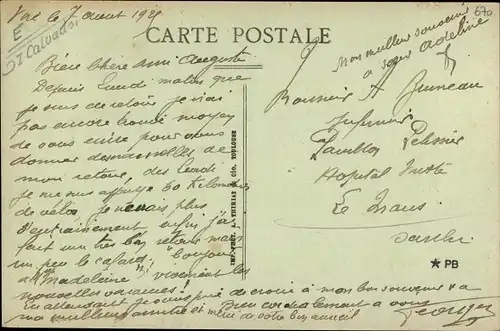 le 7 août 192
E
St Calvados
670
CARTE POSTALE
Mon meilleur souvenir
à sœur Adeline
Bien chère ami Auguste
Depuis lundi matin que
je suis de retour je n'ai
pas encore trouvé moyen
de vous écrire pour vous
donner des nouvelles de
mon retour, dès lundi
je me suis appuyé 60 kilomètres
de vélo, je n'avais plus
d'entrainement enfin j'ai
fait un très bon retour mais
un peu le cafard, bonjour
à Madeleine vivement les
nouvelles vacances!
En attendant je vous prie de croire à mon bon souvenir
Bien cordialement à vous
ma meilleure amitié et merci de votre bon accueil
Georges
Monsieur A Juneau
Infirmier
Pavillon
Hopital Mixte
Le Mans
Sarthe
IMP. PHOT. A. THIRIAT & CIE, TOULOUSE
★ PB